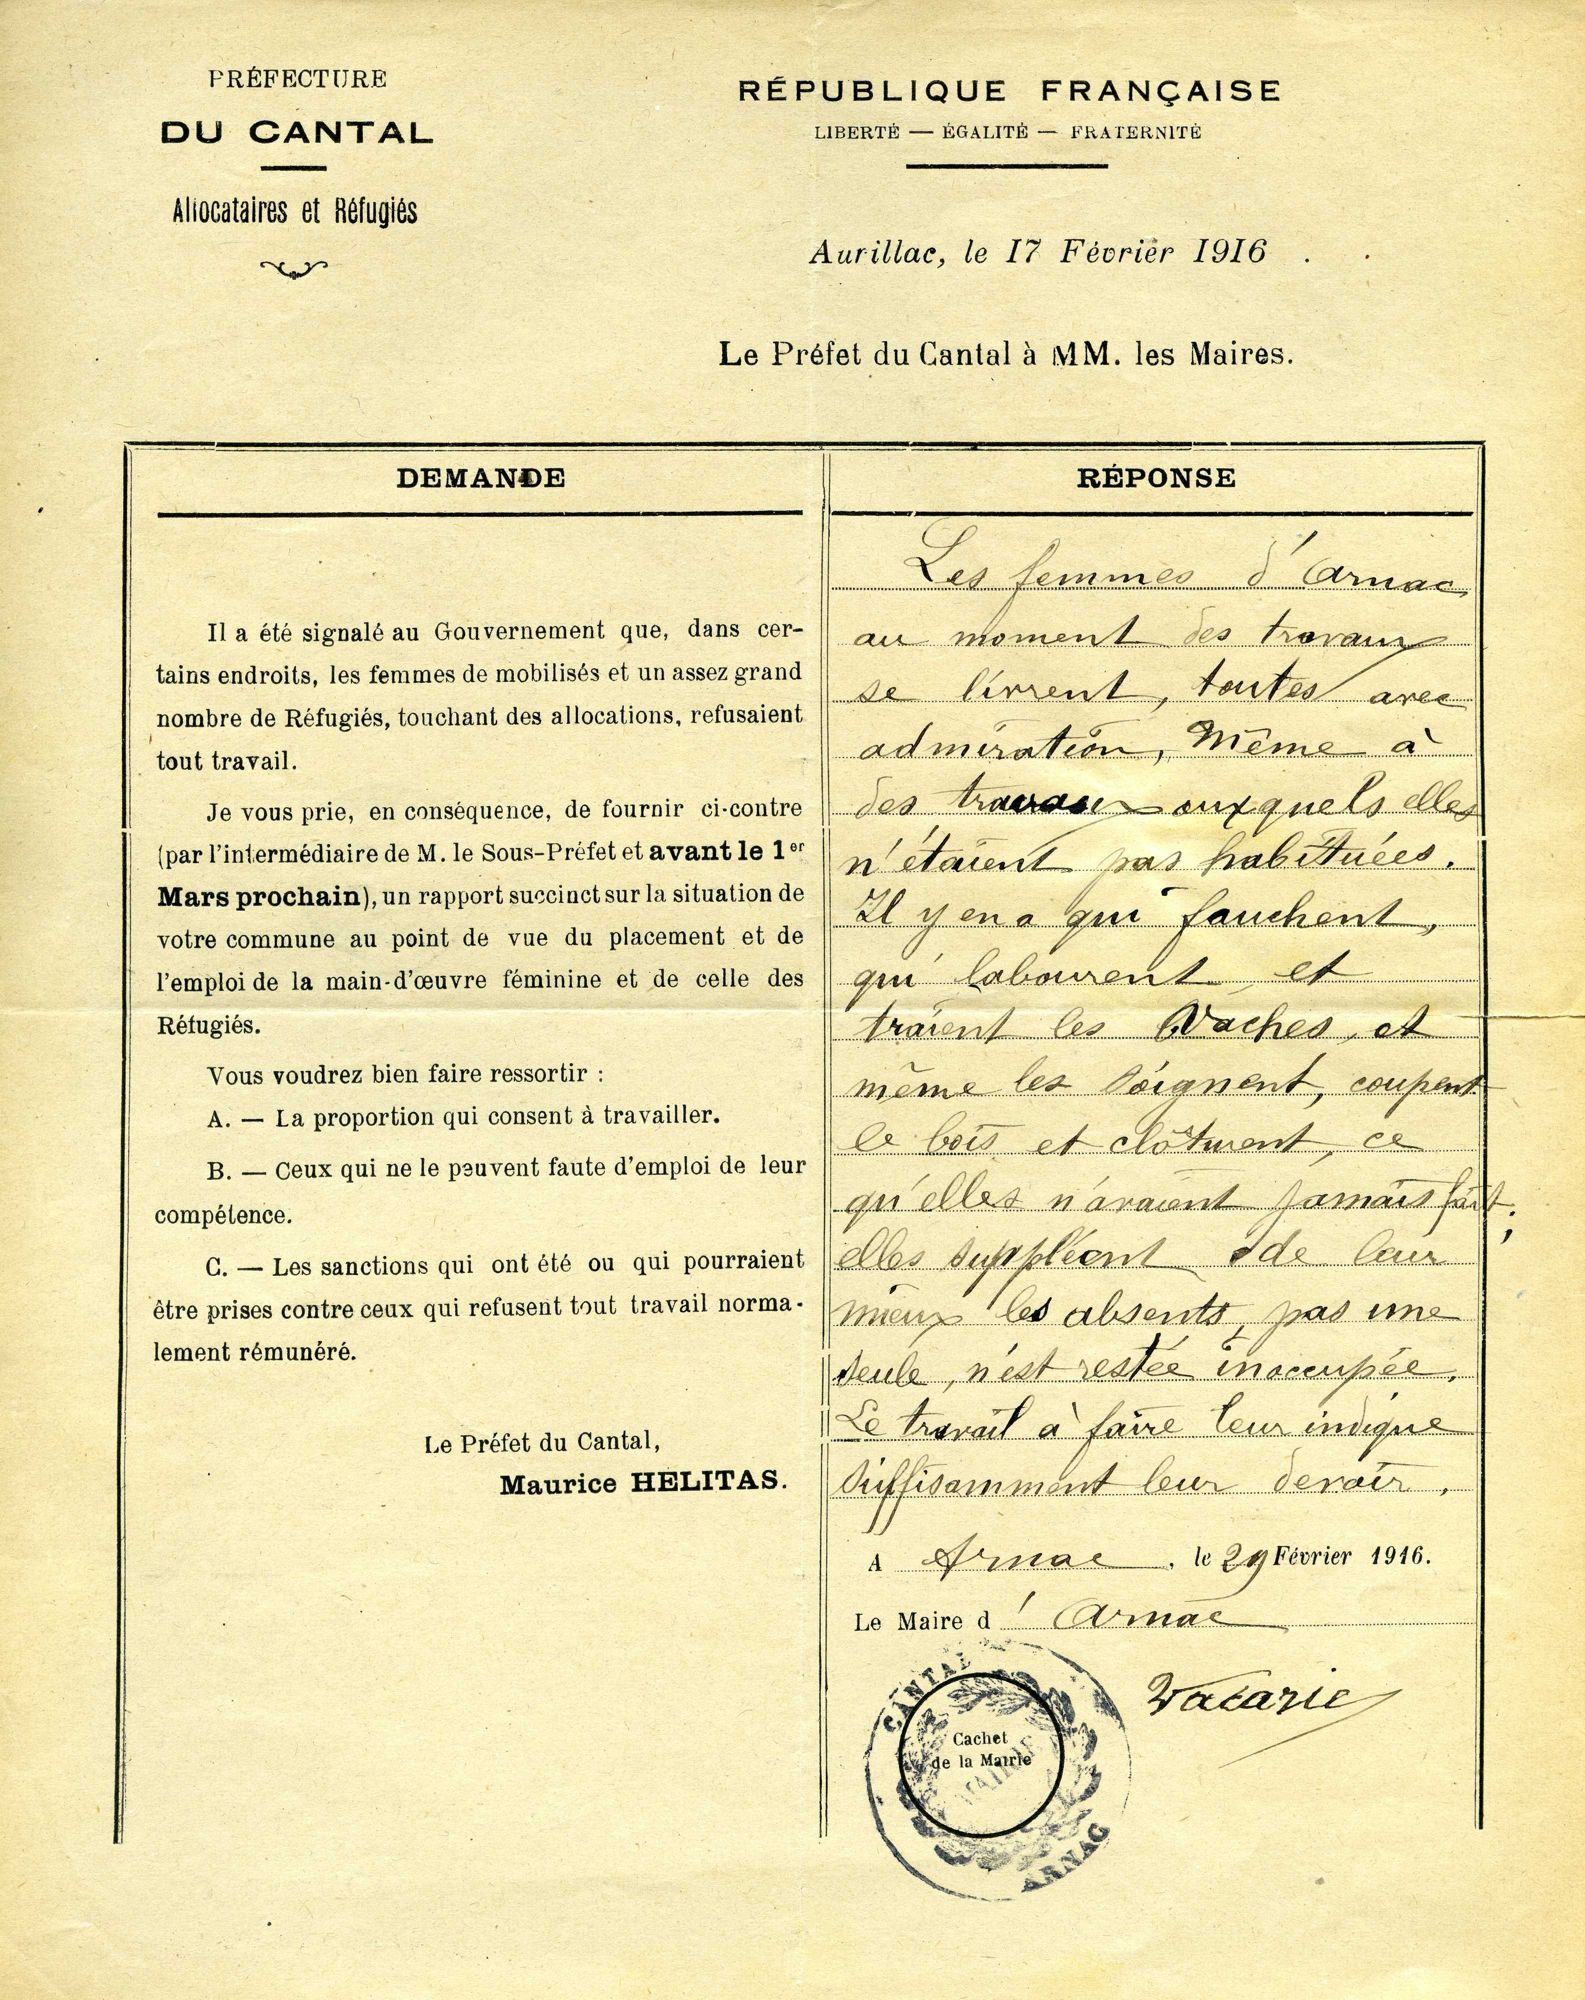 PRÉFECTURE
DU CANTAL
Allocataires et Réfugiés
RÉPUBLIQUE FRANÇAISE
LIBERTÉ — ÉGALITÉ — FRATERNITÉ
Aurillac, le 17 Février 1916
Le Préfet du Cantal à MM. les Maires.
DEMANDE
Il a été signalé au Gouvernement que, dans cer-
tains endroits, les femmes de mobilisés et un assez grand
nombre de Réfugiés, touchant des allocations, refusaient
tout travail.
Je vous prie, en conséquence, de fournir ci-contre
(par l'intermédiaire de M. le Sous-Préfet et avant le 1er
Mars prochain), un rapport succinct sur la situation de
votre commune au point de vue du placement et de
l'emploi de la main-d'œuvre féminine et de celle des
Réfugiés.
Vous voudrez bien faire ressortir :
A. — La proportion qui consent à travailler.
B. — Ceux qui ne le peuvent faute d'emploi de leur
compétence.
C. — Les sanctions qui ont été ou qui pourraient
être prises contre ceux qui refusent tout travail norma-
lement rémunéré.
Le Préfet du Cantal,
Maurice HÉLITAS.
RÉPONSE
Les femmes d'Arnac,
au moment des travaux
se livrent, toutes avec
admiration, Même à
des travaux auxquels elles
n'étaient pas habituées.
Il y en a qui fauchent,
qui labourent et
traient les Vaches, et
même les soignent, coupent
le bois et clôturent, ce
qu'elles n'avaient jamais fait;
elles suppléent de leur
mieux les absents, pas une
seule, n'est restée inoccupée.
Le travail à faire leur indique
suffisamment leur devoir.
A Arnac, le 29 Février 1916.
Le Maire d'Arnac
Vacarie
CANTAL
Cachet
de la Mairie
MAIRIE
ARNAC